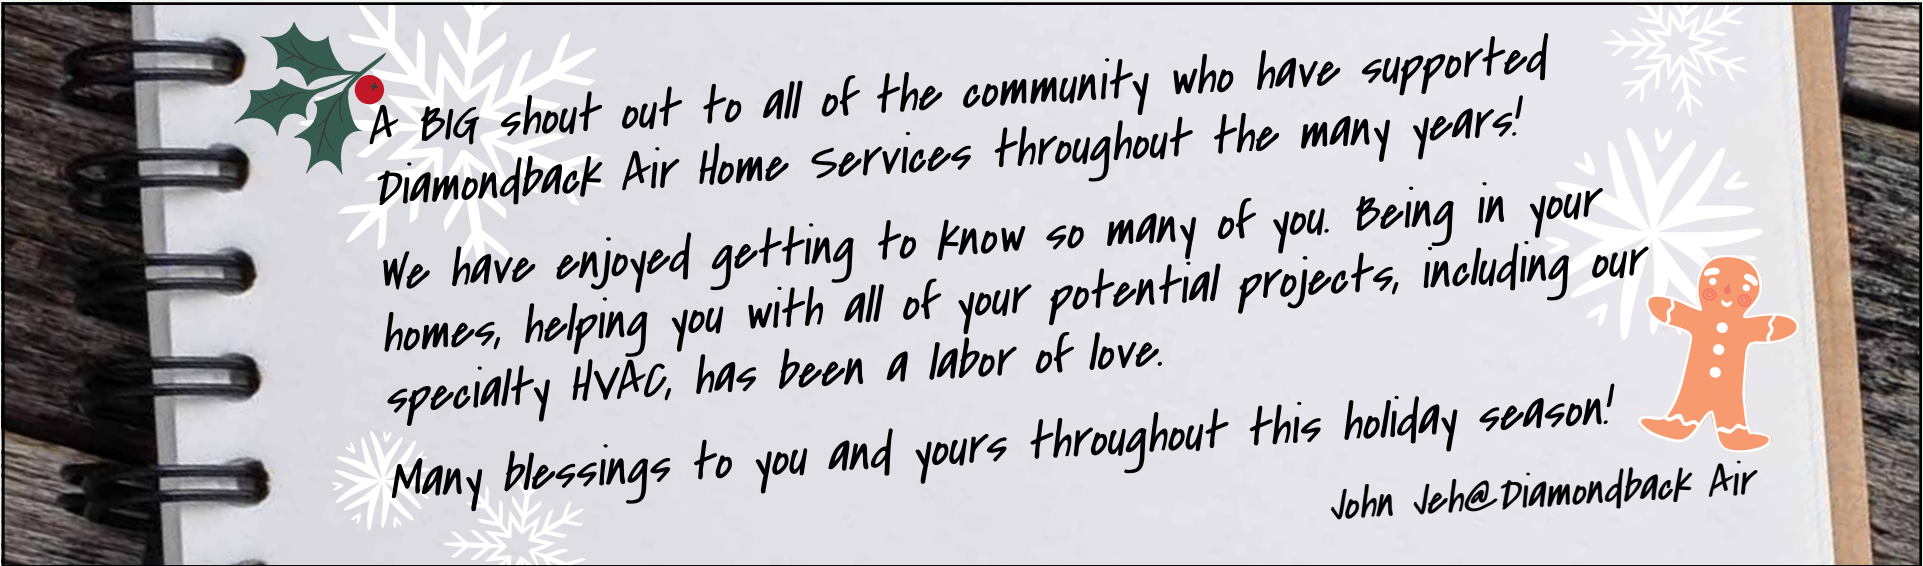 A BIG shout out to all of the community who have supported
Diamondback Air Home Services throughout the many years!
We have enjoyed getting to know so many of you. Being in your
homes, helping you with all of your potential projects, including our
specialty HVAC, has been a labor of love.
Many blessings to you and yours throughout this holiday season!
John Jeh@Diamondback Air